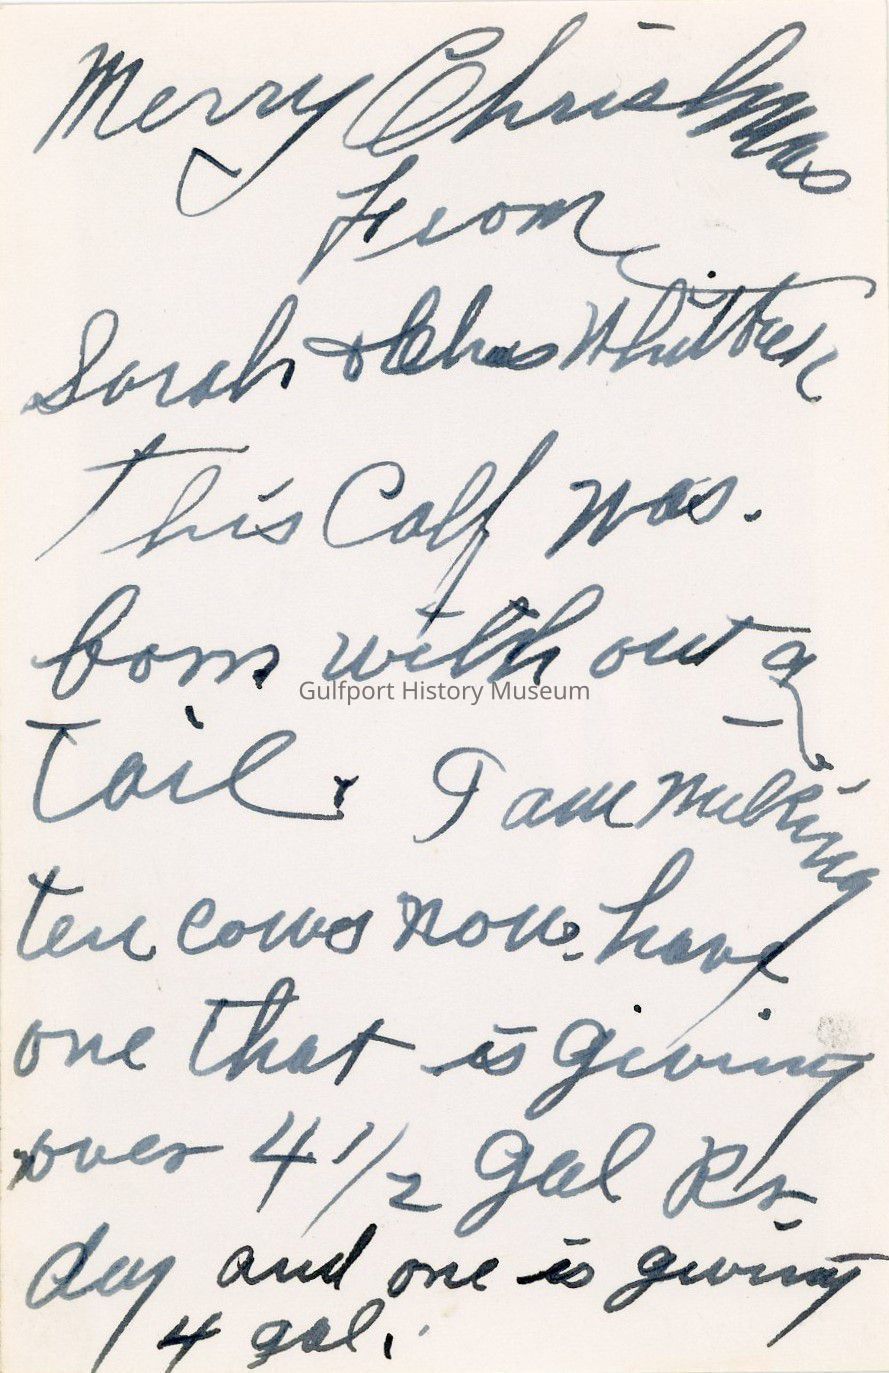 Merry Christmas
From
Sarah & Chas Whitten
This Calf was.
born with out a
Tail. I am milking
ten cows now. have
one that is giving
over 4 1/2 gal Pr
day and one is giving
4 gal.
Gulfport History Museum